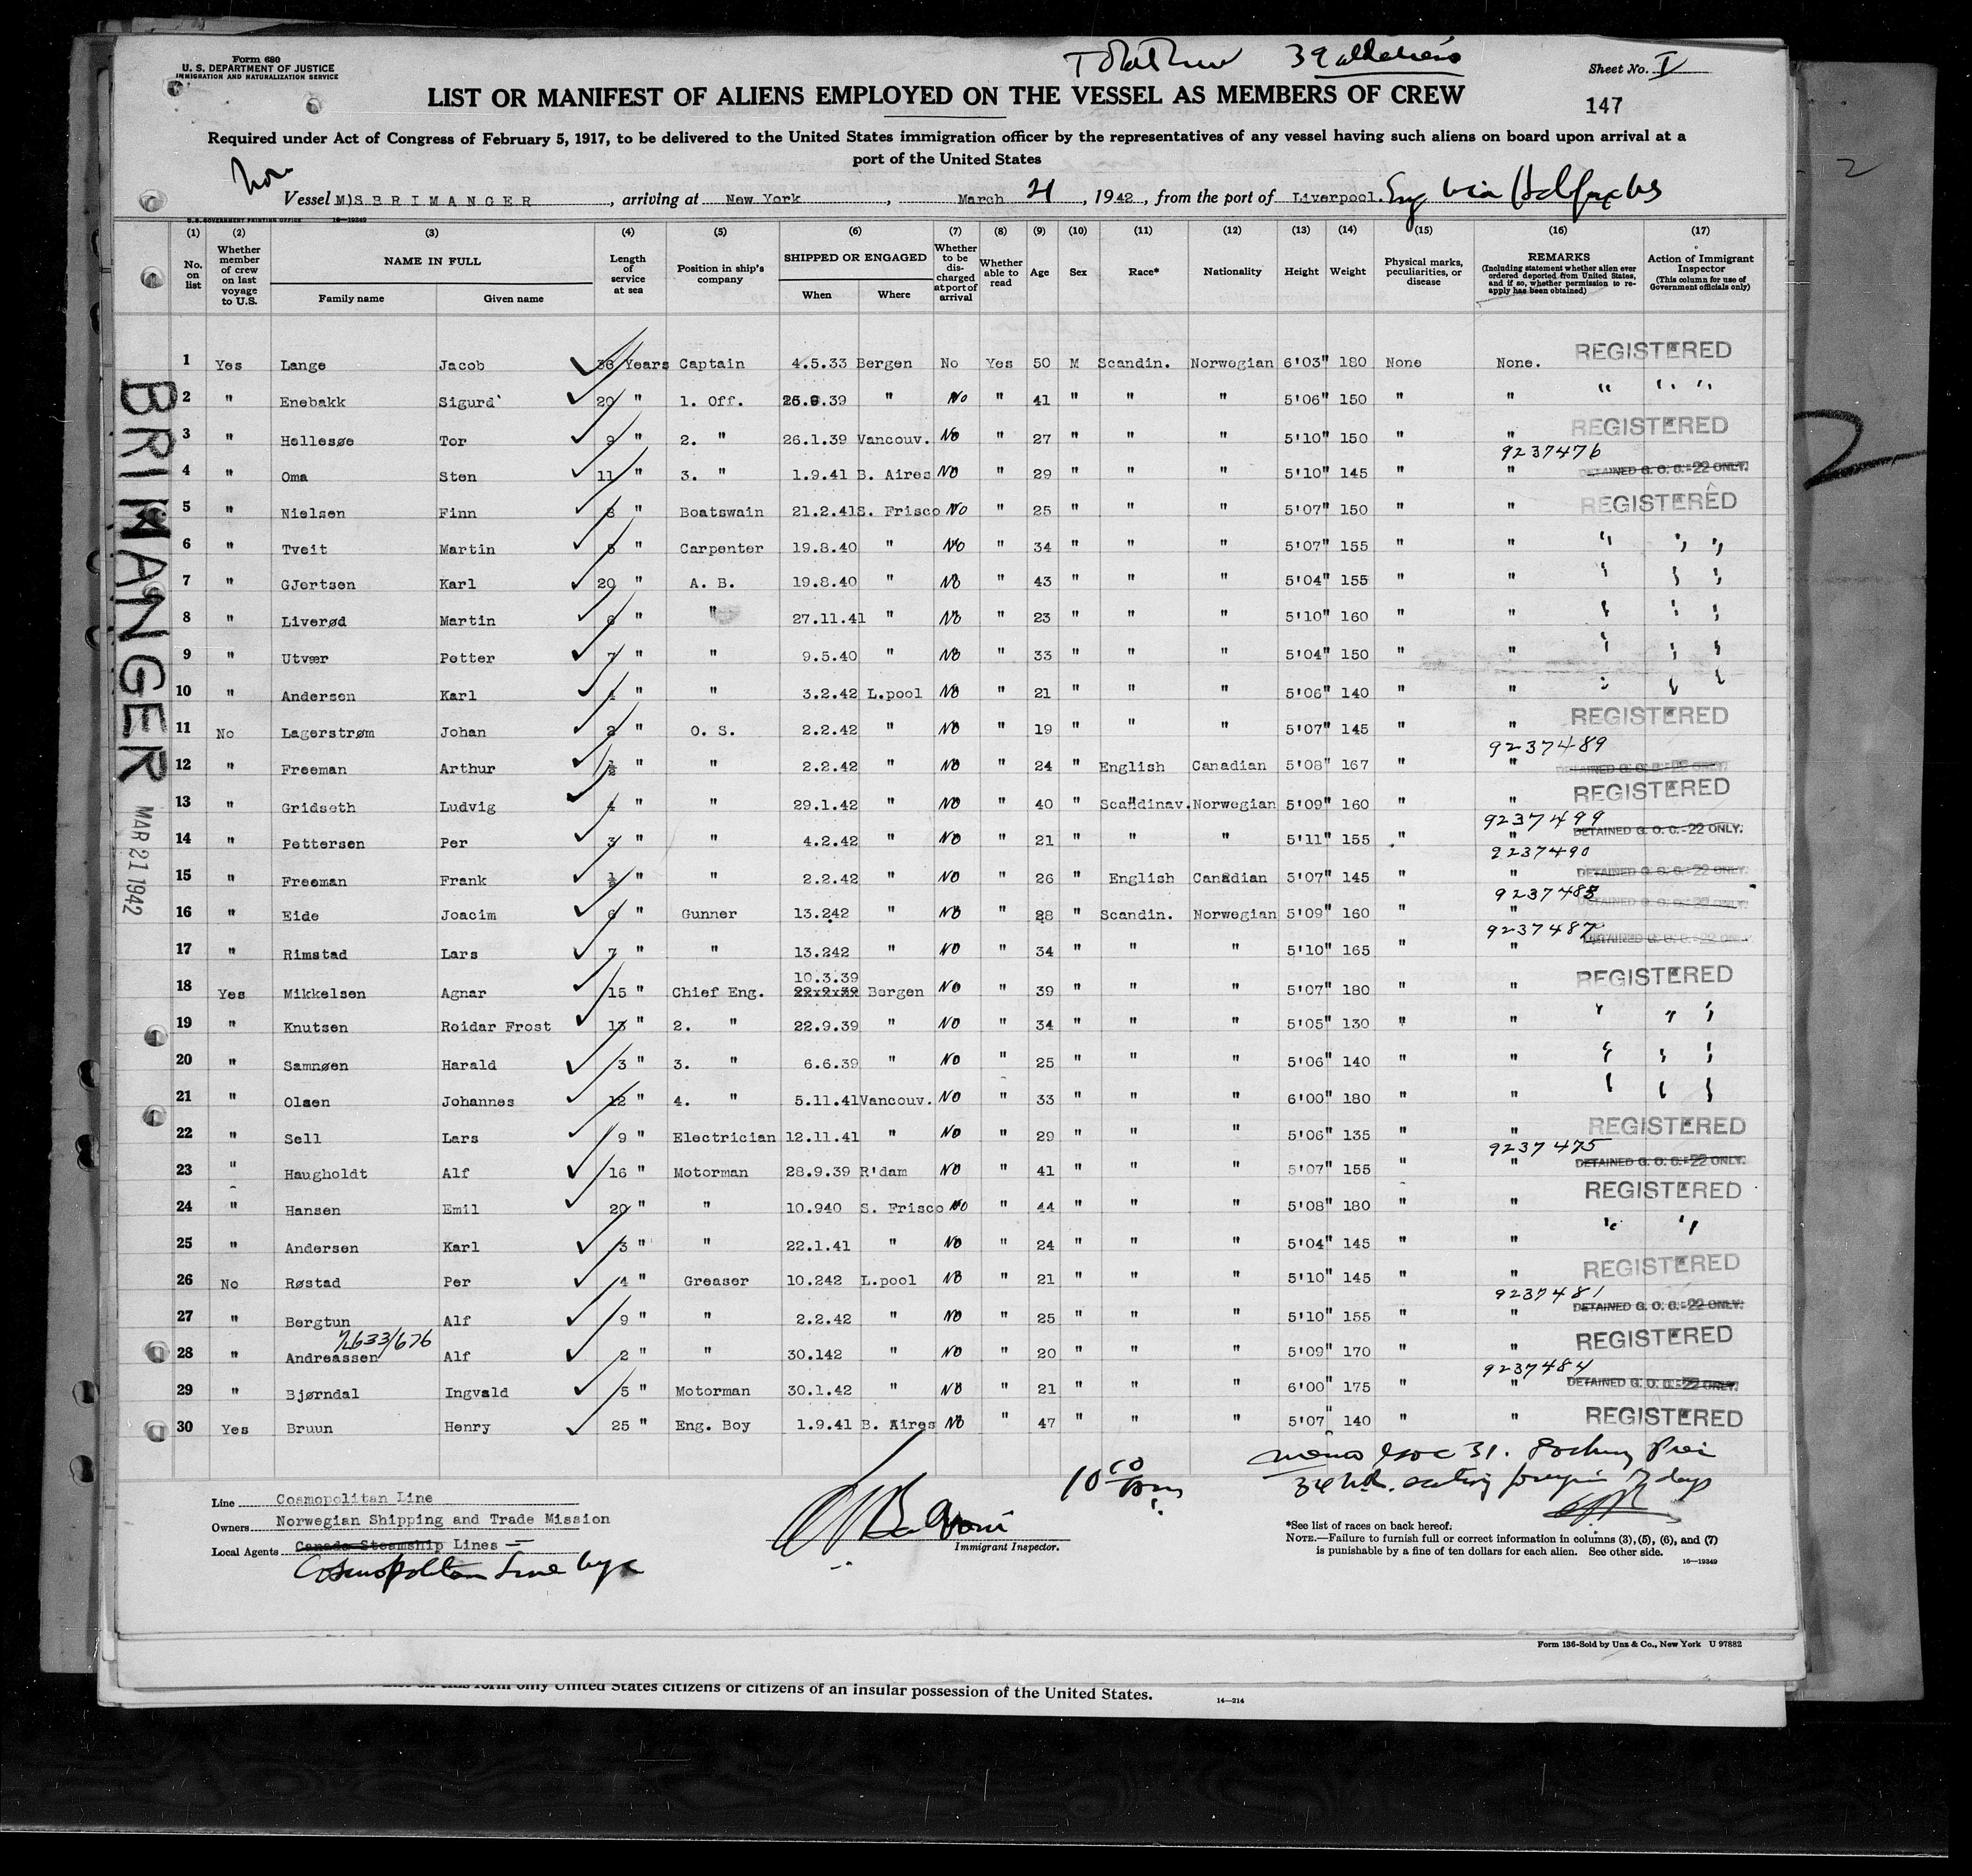 Form 680
U. S. DEPARTMENT OF JUSTICE
IMMIGRATION AND NATURALIZATION SERVICE
39
Sheet No. I
LIST OR MANIFEST OF ALIENS EMPLOYED ON THE VESSEL AS MEMBERS OF CREW
147
Required under Act of Congress of February 5, 1917, to be delivered to the United States immigration officer by the representatives of any vessel having such aliens on board upon arrival at a
port of the United States
Nor
Vessel M)S B R I M A N G E R , arriving at New York , March 21 , 1942 , from the port of Liverpool. Eng via Halifax NS
U.S. GOVERNMENT PRINTING OFFICE 16—19349
(1) (2) (3) (4) (5) (6) (7) (8) (9) (10) (11) (12) (13) (14) (15) (16) (17)
No. on list
Whether member of crew on last voyage to U.S.
NAME IN FULL
Family name Given name
Length of service at sea
Position in ship's company
SHIPPED OR ENGAGED
When Where
Whether to be discharged at port of arrival
Whether able to read
Age
Sex
Race*
Nationality
Height
Weight
Physical marks, peculiarities, or disease
REMARKS
(Including statement whether alien ever ordered deported from United States, and if so, whether permission to reapply has been obtained)
Action of Immigrant Inspector
(This column for use of Government officials only)
1 Yes Lange Jacob 36 Years Captain 4.5.33 Bergen No Yes 50 M Scandin. Norwegian 6'03" 180 None None. REGISTERED
2 " Enebakk Sigurd 20 " 1. Off. 39 " No " 41 " " " 5'06" 150 " " " " "
3 " Hellesøe Tor 9 " 2. " 26.1.39 Vancouv. No " 27 " " " 5'10" 150 " " REGISTERED
9237476
4 " Oma Sten 11 " 3. " 1.9.41 B. Aires NO " 29 " " " 5'10" 145 " " DETAINED G. O. C.-22 ONLY.
5 " Nielsen Finn 8 " Boatswain 21.2.41 S. Frisco No " 25 " " " 5'07" 150 " " REGISTERED
6 " Tveit Martin 5 " Carpenter 19.8.40 " No " 34 " " " 5'07" 155 " " " " "
7 " GJertsen Karl 20 " A. B. 19.8.40 " No " 43 " " " 5'04" 155 " " " " "
8 " Liverød Martin 6 " " 27.11.41 " No " 23 " " " 5'10" 160 " " " " "
9 " Utvær Petter 7 " " 9.5.40 " No " 33 " " " 5'04" 150 " " " " "
10 " Andersen Karl 4 " " 3.2.42 L.pool No " 21 " " " 5'06" 140 " " " " "
11 No Lagerstrøm Johan 2 " O. S. 2.2.42 " No " 19 " " " 5'07" 145 " " REGISTERED
9237489
12 " Freeman Arthur ½ " " 2.2.42 " No " 24 " English Canadian 5'08" 167 " " DETAINED G. O. C.-22 ONLY.
13 " Gridseth Ludvig 4 " " 29.1.42 " No " 40 " Scandinav. Norwegian 5'09" 160 " " REGISTERED
9237499
14 " Pettersen Per 3 " " 4.2.42 " No " 21 " " " 5'11" 155 " " DETAINED G. O. C.-22 ONLY.
9237490
15 " Freeman Frank ½ " " 2.2.42 " NO " 26 " English Canadian 5'07" 145 " " DETAINED G. O. C.-22 ONLY.
9237488
16 " Eide Joacim 6 " Gunner 13.242 " No " 28 " Scandin. Norwegian 5'09" 160 " " DETAINED G. O. C.-22 ONLY.
9237487
17 " Rimstad Lars 7 " " 13.242 " NO " 34 " " " 5'10" 165 " " DETAINED G. O. C.-22 ONLY
10.3.39
18 Yes Mikkelsen Agnar 15 " Chief Eng. Bergen NO " 39 " " " 5'07" 180 " " REGISTERED
19 " Knutsen Reidar Frost 13 " 2. " 22.9.39 " NO " 34 " " " 5'05" 130 " " " " "
20 " Samnøen Harald 3 " 3. " 6.6.39 " NO " 25 " " " 5'06" 140 " " " " "
21 " Olsen Johannes 12 " 4. " 5.11.41 Vancouv. NO " 33 " " " 6'00" 180 " " " " "
22 " Sell Lars 9 " Electrician 12.11.41 " NO " 29 " " " 5'06" 135 " " REGISTERED
9237475
23 " Haugholdt Alf 16 " Motorman 28.9.39 R'dam NO " 41 " " " 5'07" 155 " " DETAINED G. O. C.-22 ONLY.
24 " Hansen Emil 20 " " 10.940 S. Frisco NO " 44 " " " 5'08" 180 " " REGISTERED
25 " Andersen Karl 3 " " 22.1.41 " NO " 24 " " " 5'04" 145 " " " "
26 No Røstad Per 4 " Greaser 10.242 L.pool NO " 21 " " " 5'10" 145 " " REGISTERED
9237481
27 " Bergtun Alf 9 " " 2.2.42 " NO " 25 " " " 5'10" 155 " " DETAINED G. O. C.-22 ONLY.
633/676
28 " Andreassen Alf 2 " " 30.142 " NO " 20 " " " 5'09" 170 " " REGISTERED
9237484
29 " Bjørndal Ingvald 5 " Motorman 30.1.42 " NO " 21 " " " 6'00" 175 " " DETAINED G. O. C.-22 ONLY.
30 Yes Bruun Henry 25 " Eng. Boy 1.9.41 B. Aires NO " 47 " " " 5'07" 140 " " REGISTERED
BRIMANGER
MAR 21 1942
2
2
31.
7 days
Line Cosmopolitan Line
Owners Norwegian Shipping and Trade Mission
Local Agents Canada Steamship Lines
Cosmopolitan Line
Immigrant Inspector.
*See list of races on back hereof.
NOTE.—Failure to furnish full or correct information in columns (3), (5), (6), and (7)
is punishable by a fine of ten dollars for each alien. See other side.
16—19349
Form 136-Sold by Unz & Co., New York U 97882
on this form only United States citizens or citizens of an insular possession of the United States.
14—214